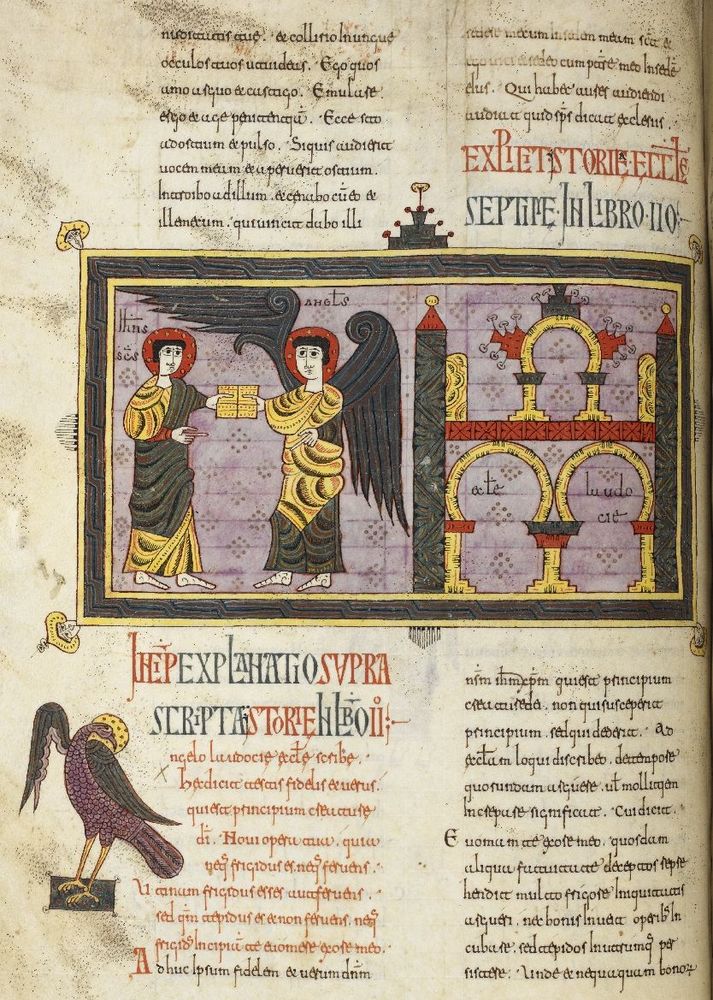 nuditatis tue. & collirio Inungue
occulos tuos ut uideas. Ego quos
amo arguo & castigo. Emulare
ergo & age penitentiā. Ecce sto
ad ostium & pulso. Si quis audierit
uocem meam & aperuerit ostium.
Intrabo ad illum. & cenabo cū eo &
ille mecum. qui uincit dabo illi
sedere mecum In meum
ego uici & sedeo cum patre meo In sede
eius. Qui habet aures audiendi
audiat quid sp̄s dicat eclesiis.
EXPLICIT STORIE ECCLE
SEPTIME IN LIBRO IIO
Ihn̄s
sc̄s
angls
ecle
laudo
cie
INCIP̄ EXPLANATIO SUPRA
SCRIPTA STORIE IN LBO II
ngelo laudocie eccl̄e scribe.
Hec dicit testis fidelis & uerus.
qui est principium creature
dī. Noui opera tua. quia
neq frigidus es. neq feruens.
Utinam frigidus esses aut feruens.
sed qm̄ tepidus es & non feruens. neq
frigids Incipiā te euomere ex ore meo.
Adhuc Ipsum fidelem & uerum dn̄m
nsm ihm xpm qui est principium
creature dei. non qui susceperit
principium. sed qui dederit. Ad
eccl̄am loqui describeo. de tempore
quorundam arguere. uł mollitiem
In cepare significat. Cui dicit.
Euomam te ex ore meo. quosdam
aliqua fatuitate deceptos repre
hendit multo frigore Iniquitatis
argueri. nec bonis Inuect operib In
cubare. sed tepidos In utrumq per
sistere. Unde & nequaquam bonor